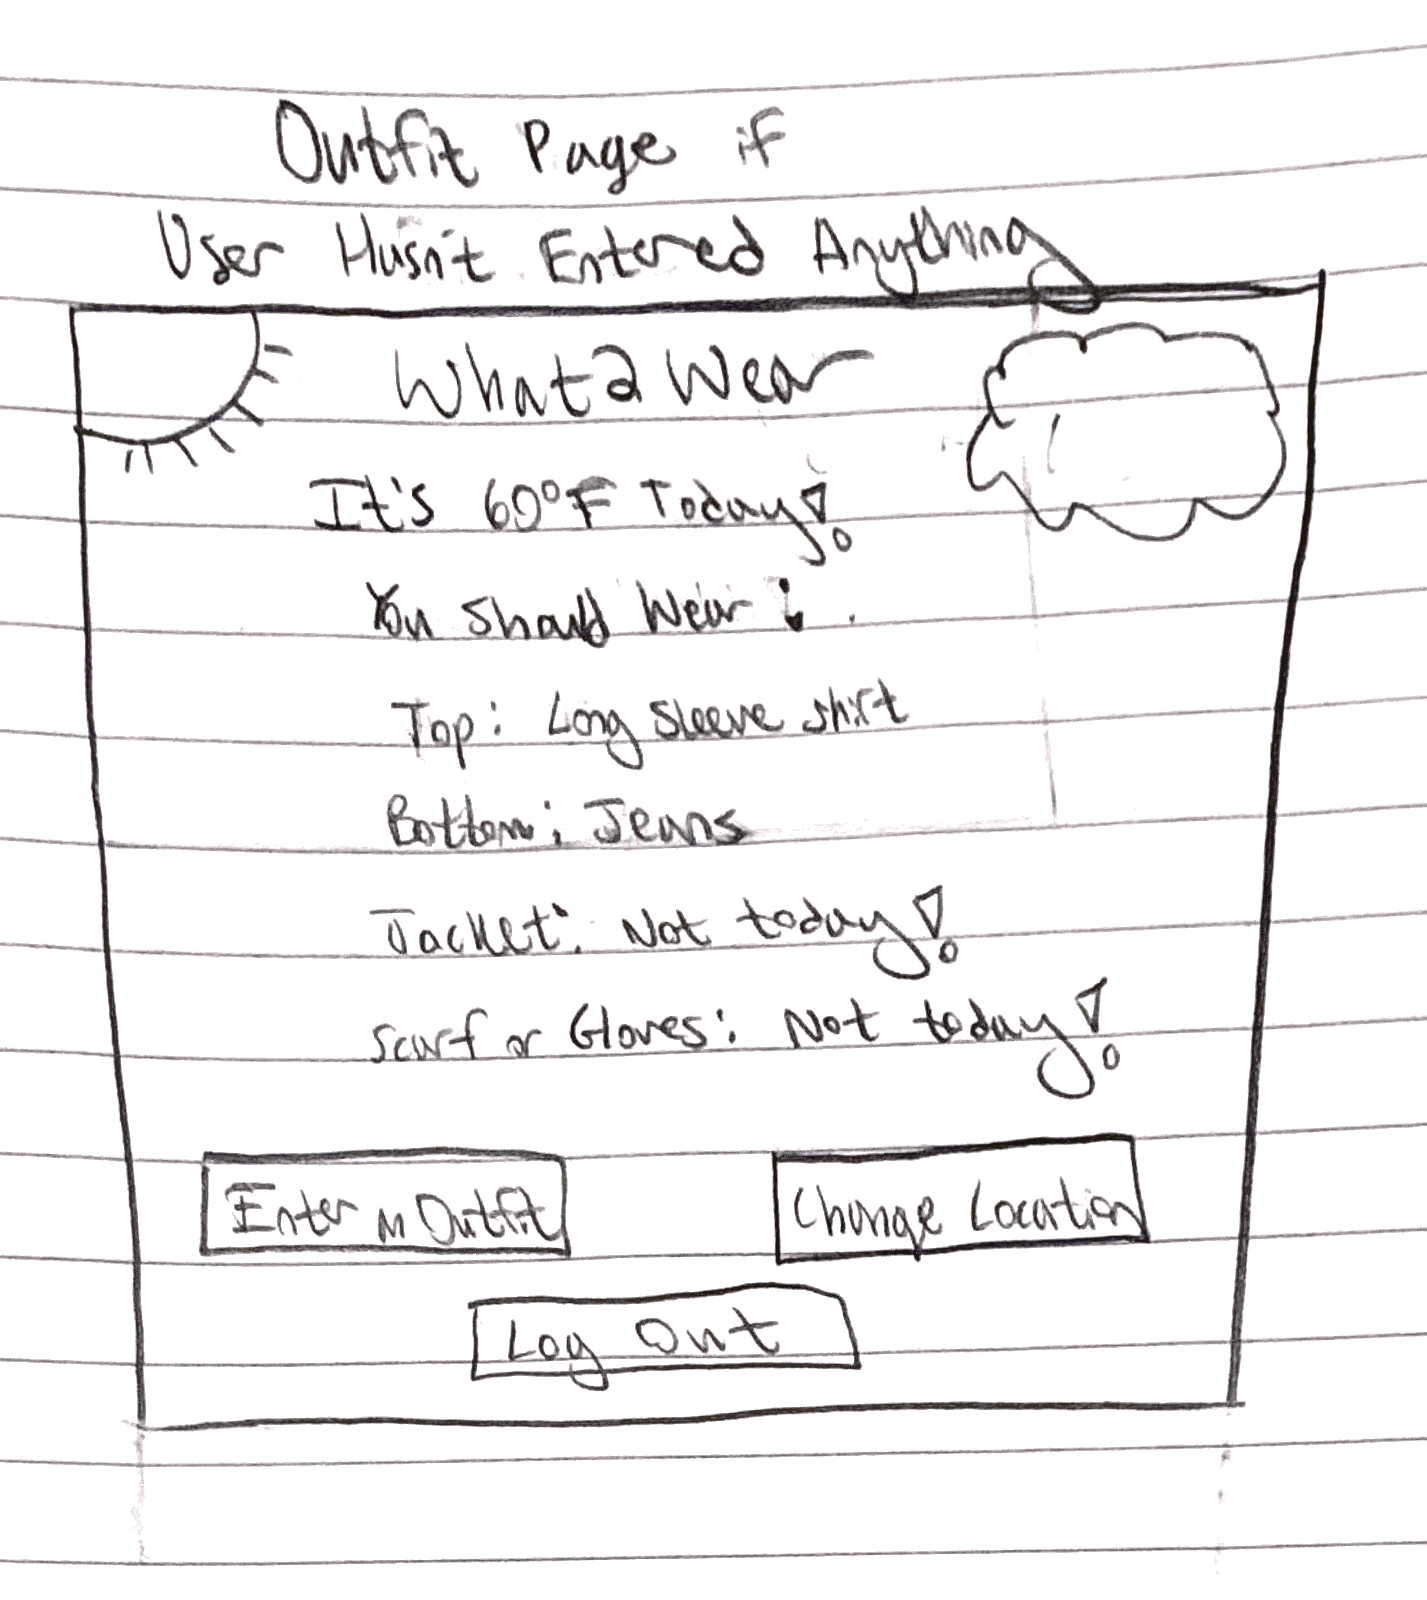 Outfit Page if
User Hasn't Entered Anything
What2Wear
It's 60°F Today!
You Should Wear:
Top: Long Sleeve shirt
Bottom: Jeans
Jacket: Not today!
Scarf or Gloves: Not today!
Enter an Outfit
Change Location
Log Out